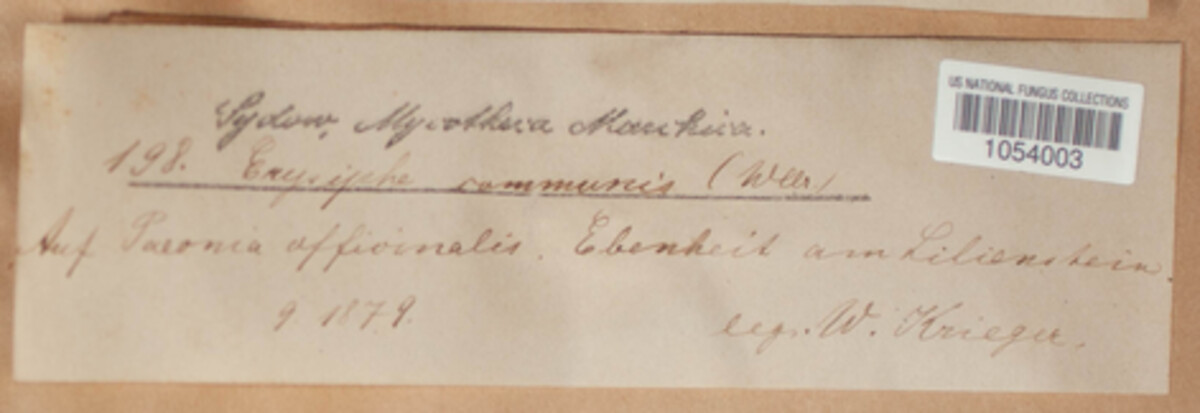 US NATIONAL FUNGUS COLLECTIONS
1054003
Sydow, Mycotheca Marchica.
198. Erysiphe communis (Wllr)
Auf Paeonia officinalis. Ebenheit am Lilienstein.
9. 1879.
leg. W. Krieger.